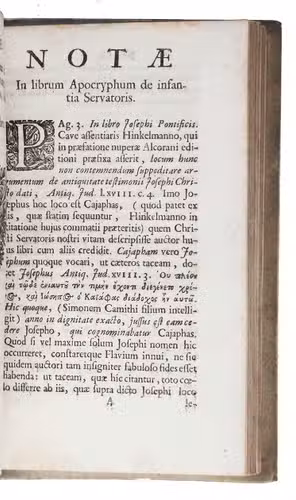 NOTÆ
In librum Apocryphum de infan-
tia Servatoris.
PAg. 3. In libro Josephi Pontificis.
Cave assentiaris Hinkelmanno, qui
in præfatione nuperæ Alcorani edi-
tioni præfixa asserit, locum hunc
non contemnendum suppeditare ar-
gumentum de antiquitate testimonii Josephi Chri-
sto dati, Antiq. Jud. l. XVIII. c. 4. Imo Jo-
sephus hoc loco est Cajaphas, ( quod patet ex
iis, quæ statim sequuntur, Hinkelmanno in
citatione hujus commatis præteritis) quem Chri-
sti Servatoris nostri vitam descripsisse auctor hu-
jus libri cum aliis credidit. Cajapham vero Jo-
sephum quoque vocari, ut cæteros taceam, do-
cet Josephus Antiq. Jud. XVIII. 3. Οὐ πλέον
καὶ τῷδε ἐνιαυτοῦ τὴν τιμὴν ἔχοντι διεγένετο χρό-
νος, καὶ Ἰώσηπος ὁ Καϊάφας διάδοχος ἦν αὐτῷ.
Hic quoque, (Simonem Camithi filium intelli-
git) anno in dignitate exacto, jussus est eam ce-
dere Josepho, qui cognominabatur Cajaphas.
Quod si vel maxime solum Josephi nomen hic
occurreret, constaretque Flavium innui, ne sic
quidem auctori tam insigniter fabuloso fides esset
habenda: ut taceam, quæ hic citantur, toto cœ-
lo differre ab iis, quæ supra dicto Josephi loco
A le-